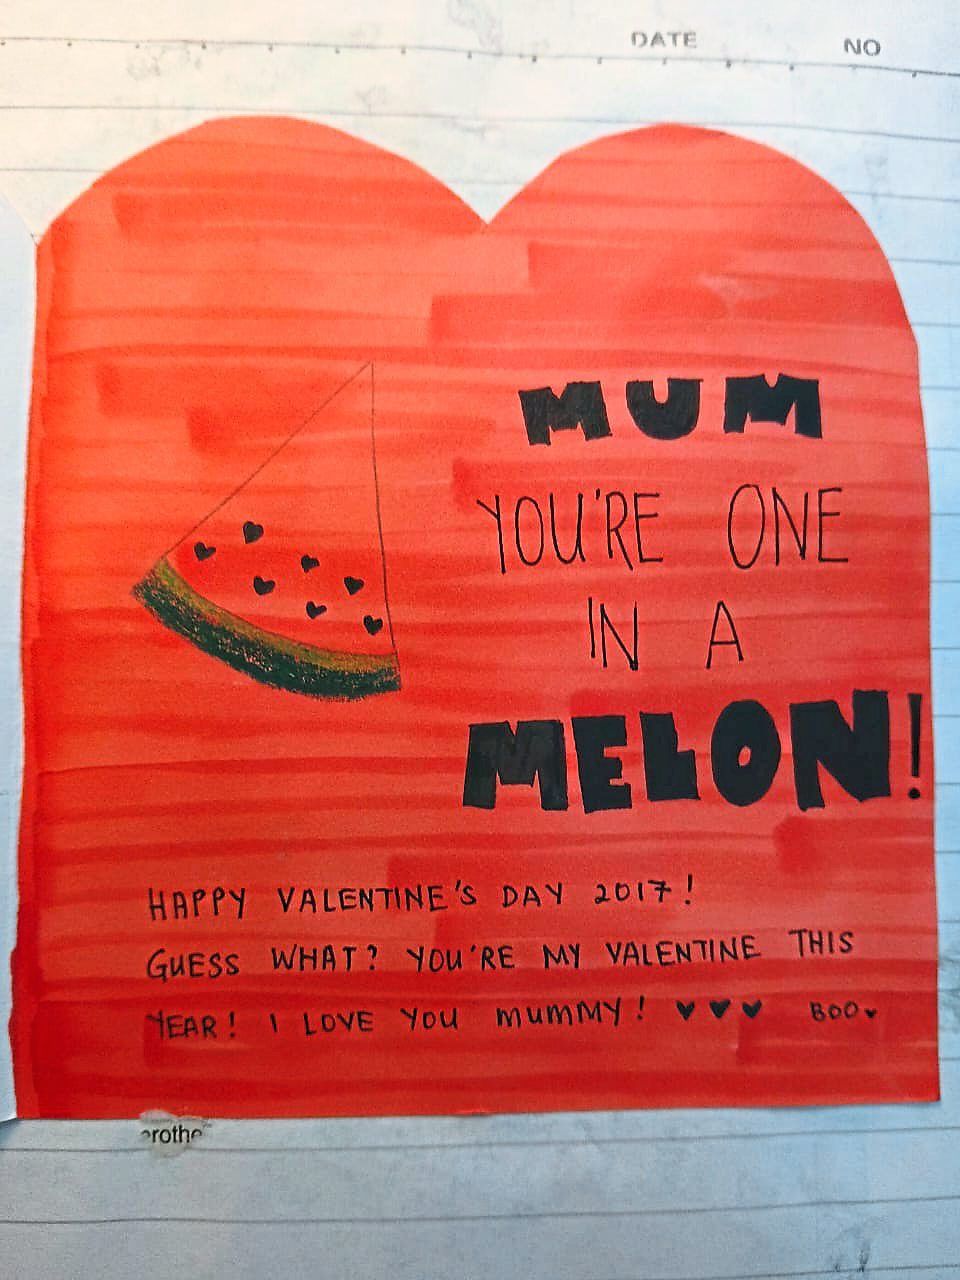 DATE NO
MUM
YOU'RE ONE
IN A
MELON!
HAPPY VALENTINE'S DAY 2017!
GUESS WHAT? YOU'RE MY VALENTINE THIS
YEAR! I LOVE YOU MUMMY! ♥ ♥ ♥ BOO♥